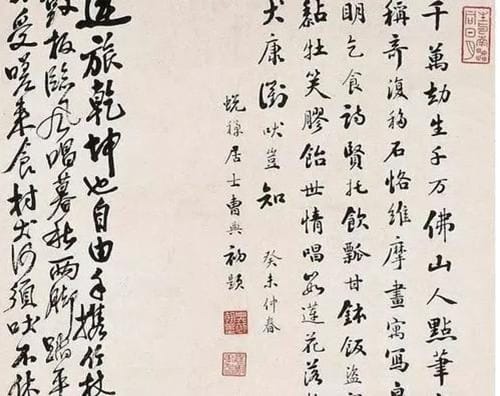 千萬劫生千万佛山人點筆
稱奇復移石恪維摩畫寓寫
明乞食詩賢托飲瓢甘鉢飯盜
黏牡笑膠飴世情唱罷蓮花落
犬康衢吠豈知
居士曹興初題
癸未仲春
旅乾坤也自由手携竹杖
板臨風唱暮秋兩脚踏平
受嗟来食村犬何須吠不休